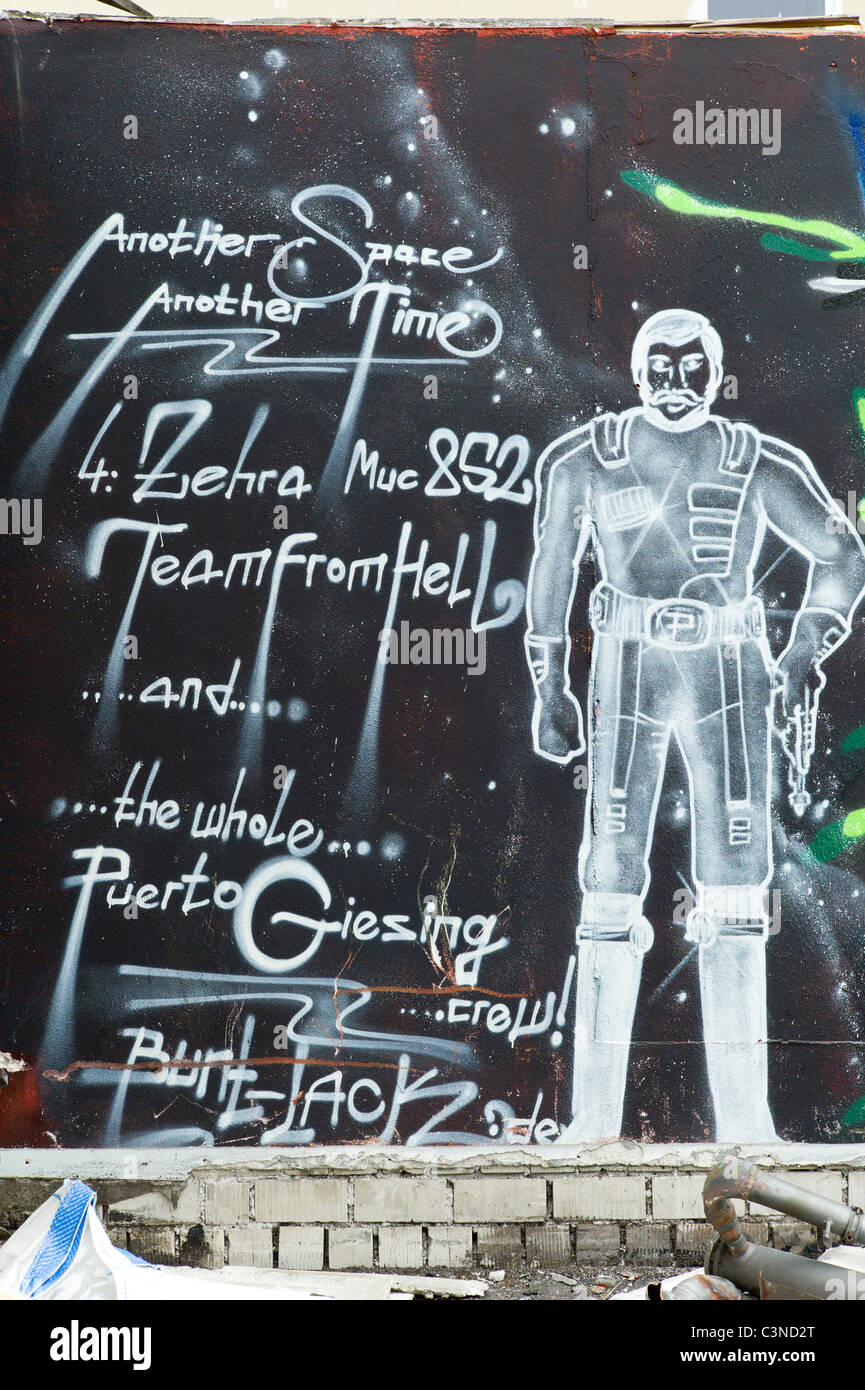 Another Space
Another Time
4: Zehra Muc 852
Team From Hell
.....and.....
....the whole....
Puerto Giesing
....crew!
Bunt-Lack
:de
P
a
alamy
Image ID: C3ND2T
www.alamy.com